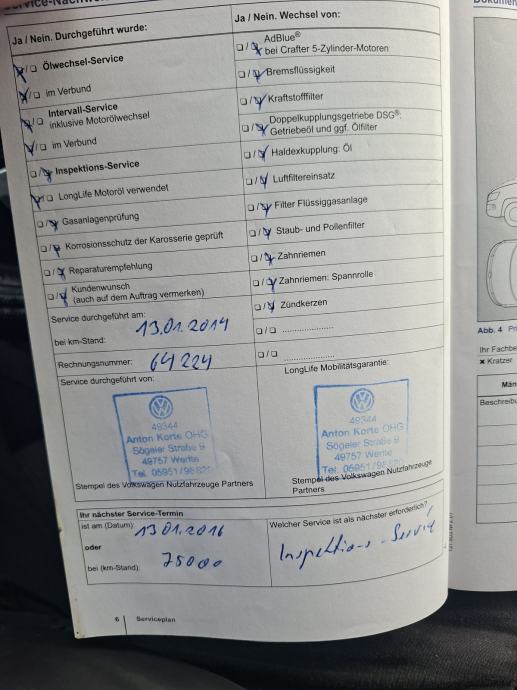 Ja / Nein. Durchgeführt wurde:
Ölwechsel-Service
im Verbund
Intervall-Service
inklusive Motorölwechsel
im Verbund
Inspektions-Service
LongLife Motoröl verwendet
Gasanlagenprüfung
Korrosionsschutz der Karosserie geprüft
Reparaturempfehlung
Kundenwunsch
(auch auf dem Auftrag vermerken)
Service durchgeführt am:
13.01.2014
bei km-Stand:
Rechnungsnummer: 64 224
Service durchgeführt von:
49344
Anton Korte OHG
Sögeler Straße 9
49757 Werlte
Tel. 05951/98
Stempel des Volkswagen Nutzfahrzeuge Partners
Ja / Nein. Wechsel von:
AdBlue®
bei Crafter 5-Zylinder-Motoren
Bremsflüssigkeit
Kraftstofffilter
Doppelkupplungsgetriebe DSG®:
Getriebeöl und ggf. Ölfilter
Haldexkupplung: Öl
Luftfiltereinsatz
Filter Flüssiggasanlage
Staub- und Pollenfilter
Zahnriemen
Zahnriemen: Spannrolle
Zündkerzen
LongLife Mobilitätsgarantie:
49344
Anton Korte OHG
Sögeler Straße 9
49757 Werlte
Tel. 05951/98
Stempel des Volkswagen Nutzfahrzeuge
Partners
Ihr nächster Service-Termin
ist am (Datum): 13 01.2016
oder
bei (km-Stand): 75000
Welcher Service ist als nächster erforderlich?
Inspektions-Service
6 Serviceplan
Abb. 4
Ihr Fachbe
Kratzer
Män
Beschreibu